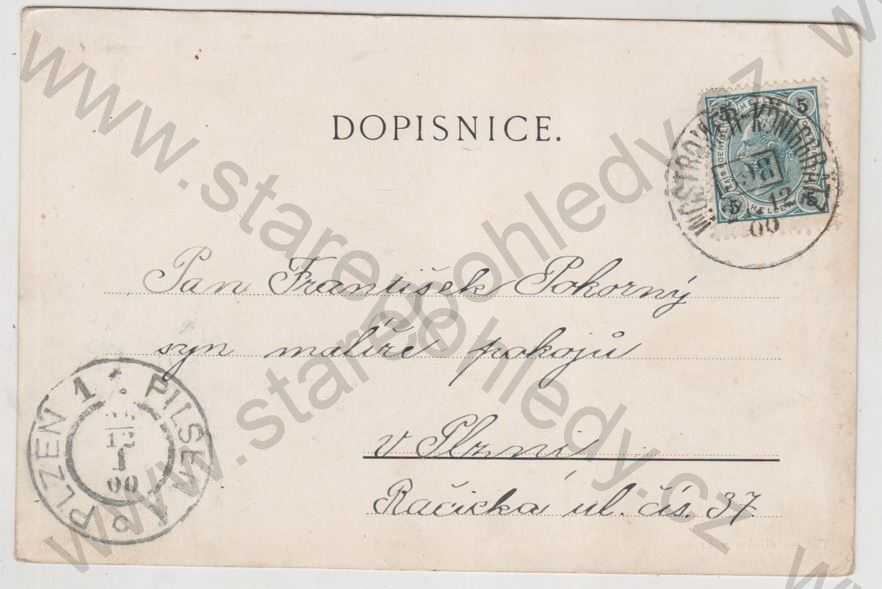 DOPISNICE.
5 5
WOSTROMĚR-KÖNIGGRÄTZ
12
00
5 5
HELLER
Pan František Pokorný
syn malíře pokojů
v Plzni
Račická ul. čís. 37.
PLZEN 1 * PILSEN
12
1
00
www.starepohledy.cz
www.starepohledy.cz